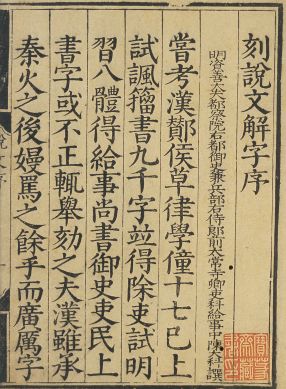 刻說文解字序
明資善大夫都察院右都御史兼兵部右侍郎前太常寺卿吏科給事中陳大科撰
嘗考漢酇侯草律學僮十七已上
試諷籀書九千字竝得除吏試明
習八體得給事尚書御史吏民上
書字或不正輒舉劾之夫漢雖承
秦火之後嫚罵之餘乎而廣厲字
說文序